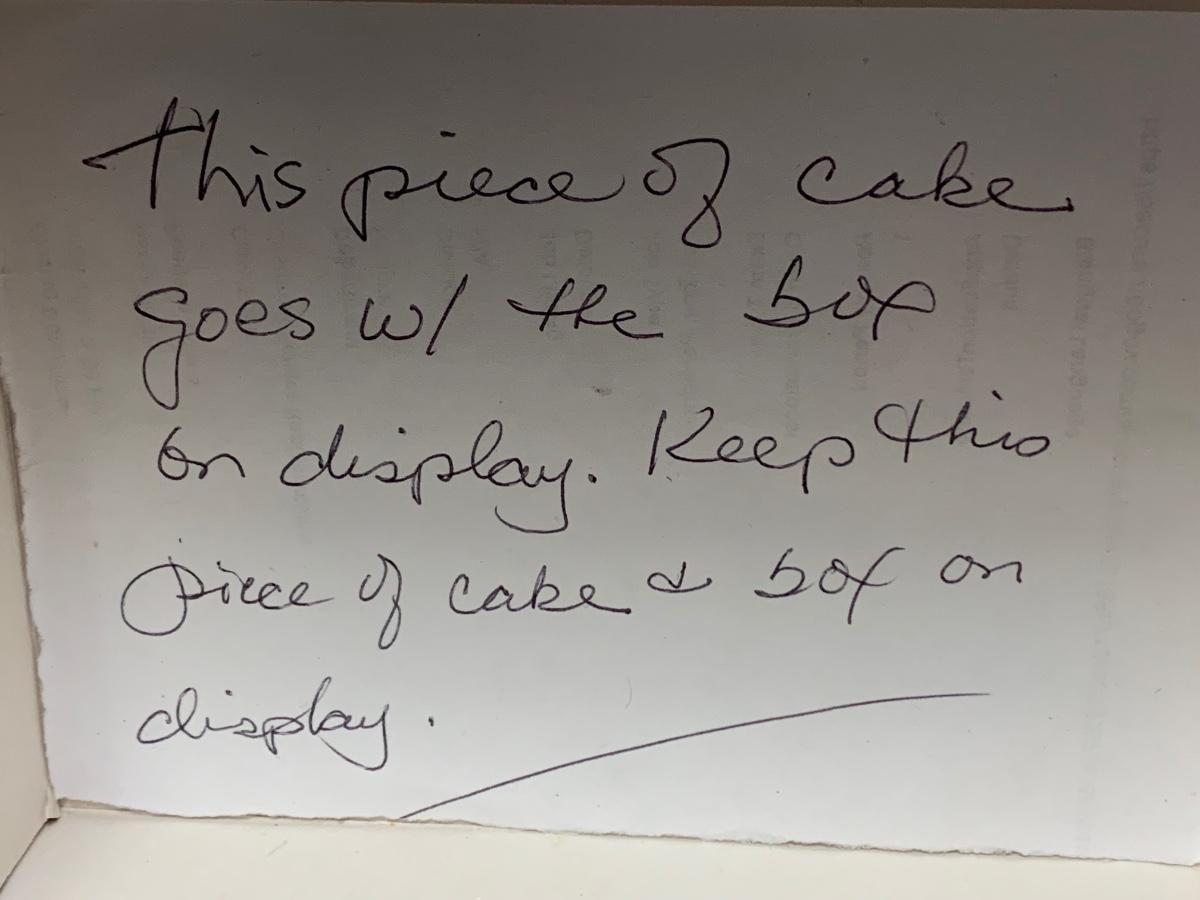 This piece of cake
goes w/ the box
on display. Keep this
piece of cake & box on
display.